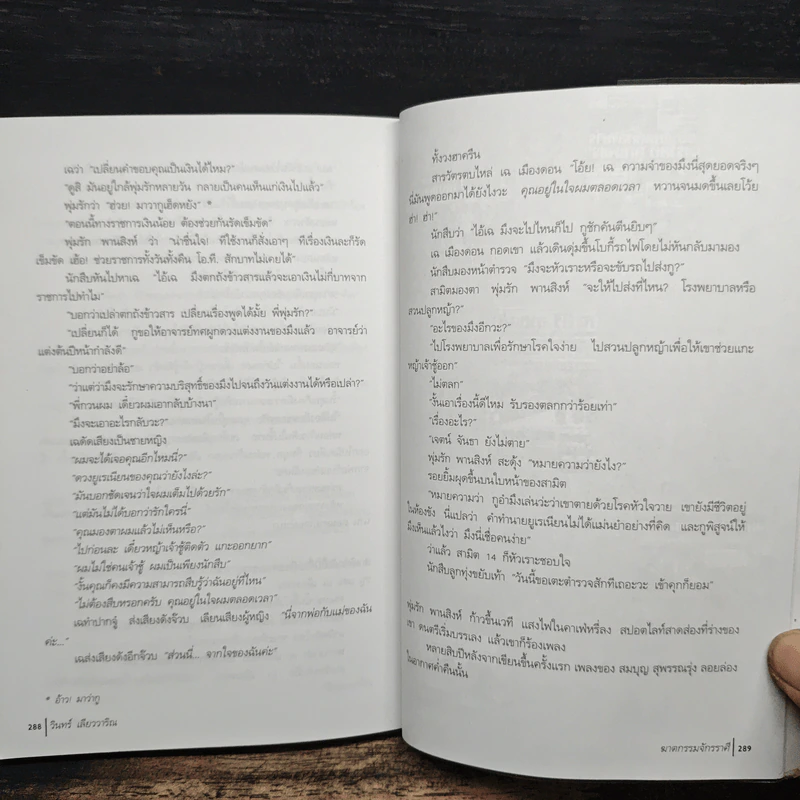 เฉว่า “เปลี่ยนคำขอบคุณเป็นเงินได้ไหม?”
“ดูสิ มันอยู่ใกล้พุ่มรักหลายวัน กลายเป็นคนเห็นแก่เงินไปแล้ว”
พุ่มรักว่า “ฮ่วย! มาวากูเฮ็ดหยัง” *
“ตอนนี้ทางราชการเงินน้อย ต้องช่วยกันรัดเข็มขัด”
พุ่มรัก พานสิงห์ ว่า “น่าชื่นใจ! ทีใช้งานก็สั่งเอาๆ ทีเรื่องเงินละก็รัด
เข็มขัด เฮ้อ! ช่วยราชการทั้งวันทั้งคืน โอ.ที. สักบาทไม่เคยได้”
นักสืบหันไปหาเฉ “ไอ้เฉ มึงตกถังข้าวสารแล้วจะเอาเงินไม่กี่บาทจาก
ราชการไปทำไม”
“บอกว่าเปล่าตกถังข้าวสาร เปลี่ยนเรื่องพูดได้มั้ย พี่พุ่มรัก?”
“เปลี่ยนก็ได้ กูขอให้อาจารย์ทศผูกดวงแต่งงานของมึงแล้ว อาจารย์ว่า
แต่งต้นปีหน้ากำลังดี”
“บอกว่าอย่าล้อ”
“ว่าแต่ว่ามึงจะรักษาความบริสุทธิ์ของมึงไปจนถึงวันแต่งงานได้หรือเปล่า?”
“พี่กวนผม เดี๋ยวผมเอากลับบ้างนา”
“มึงจะเอาอะไรกลับวะ?”
เฉดัดเสียงเป็นชายหญิง
“ผมจะได้เจอคุณอีกไหมนี่?”
“ดวงยูเรเนียนของคุณว่ายังไงล่ะ?”
“มันบอกชัดเจนว่าใจผมเต็มไปด้วยรัก”
“แต่มันไม่ได้บอกว่ารักใครนี่”
“คุณมองตาผมแล้วไม่เห็นหรือ?”
“ไปก่อนละ เดี๋ยวหญ้าเจ้าชู้ติดตัว แกะออกยาก”
“ผมไม่ใช่คนเจ้าชู้ ผมเป็นเพียงนักสืบ”
“งั้นคุณก็คงมีความสามารถสืบรู้ว่าฉันอยู่ที่ไหน”
“ไม่ต้องสืบหรอกครับ คุณอยู่ในใจผมตลอดเวลา”
เฉทำปากจู๋ ส่งเสียงดังจ๊วบ เลียนเสียงผู้หญิง “นี่จากพ่อกับแม่ของฉัน
ค่ะ...”
เฉส่งเสียงดังอีกจ๊วบ “ส่วนนี่... จากใจของฉันค่ะ”
* อ้าว! มาว่ากู
288 วินทร์ เลียววาริณ
ทั้งวงฮาครืน
สารวัตรตบไหล่ เฉ เมืองดอน “โอ้ย! เฉ ความจำของมึงนี่สุดยอดจริงๆ
นี่มันพูดออกมาได้ยังไงวะ คุณอยู่ในใจผมตลอดเวลา หวานจนมดขึ้นเลยโว้ย
ฮ่า! ฮ่า!”
นักสืบว่า “ไอ้เฉ มึงจะไปไหนก็ไป กูชักคันตีนยิบๆ”
เฉ เมืองดอน กอดเขา แล้วเดินดุ่มขึ้นโบกี้รถไฟโดยไม่หันกลับมามอง
นักสืบมองหน้าตำรวจ “มึงจะหัวเราะหรือจะขับรถไปส่งกู?”
สามิตมองตา พุ่มรัก พานสิงห์ “จะให้ไปส่งที่ไหน? โรงพยาบาลหรือ
สวนปลูกหญ้า?”
“อะไรของมึงอีกวะ?”
“ไปโรงพยาบาลเพื่อรักษาโรคใจง่าย ไปสวนปลูกหญ้าเพื่อให้เขาช่วยแกะ
หญ้าเจ้าชู้ออก”
“ไม่ตลก”
“งั้นเอาเรื่องนี้ดีไหม รับรองตลกกว่าร้อยเท่า”
“เรื่องอะไร?”
“เจตน์ จันธา ยังไม่ตาย”
พุ่มรัก พานสิงห์ สะดุ้ง “หมายความว่ายังไง?”
รอยยิ้มผุดขึ้นบนใบหน้าของสามิต
“หมายความว่า กูอำมึงเล่นว่ะว่าเขาตายด้วยโรคหัวใจวาย เขายังมีชีวิตอยู่
ในห้องขัง นี่แปลว่า คำทำนายยูเรเนียนไม่ได้แม่นยำอย่างที่คิด และกูพิสูจน์ให้
มึงเห็นแล้วไงว่า มึงนี่เชื่อคนง่าย”
ว่าแล้ว สามิต 14 ก็หัวเราะชอบใจ
นักสืบลูกทุ่งขยับเท้า “วันนี้ขอเตะตำรวจสักทีเถอะวะ เข้าคุกก็ยอม”
พุ่มรัก พานสิงห์ ก้าวขึ้นเวที แสงไฟในคาเฟ่หรี่ลง สปอตไลท์สาดส่องที่ร่างของ
เขา ดนตรีเริ่มบรรเลง แล้วเขาก็ร้องเพลง
หลายสิบปีหลังจากเขียนขึ้นครั้งแรก เพลงของ สมบุญ สุพรรณรุ่ง ลอยล่อง
ในอากาศค่ำคืนนั้น
ฆาตกรรมจักรราศี 289